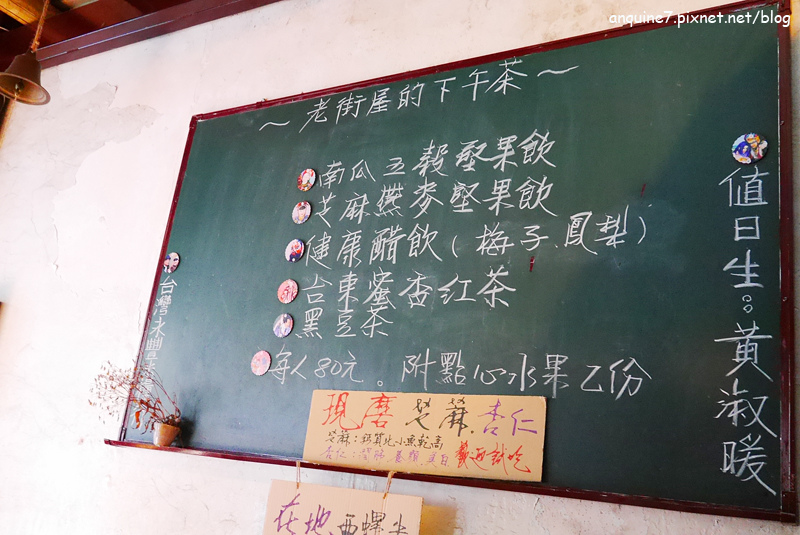 anquine7.pixnet.net/blog
～老街屋的下午茶～
南瓜五穀堅果飲
芝麻燕麥堅果飲
健康醋飲(梅子.鳳梨)
台東蜜香紅茶
黑豆茶
每人80元。附點心水果乙份
值日生：黃淑暖
台灣永豐
現磨芝麻.杏仁
芝麻：鈣質比小魚乾高
杏仁：養顏.美白 歡迎試吃
在地.西螺米